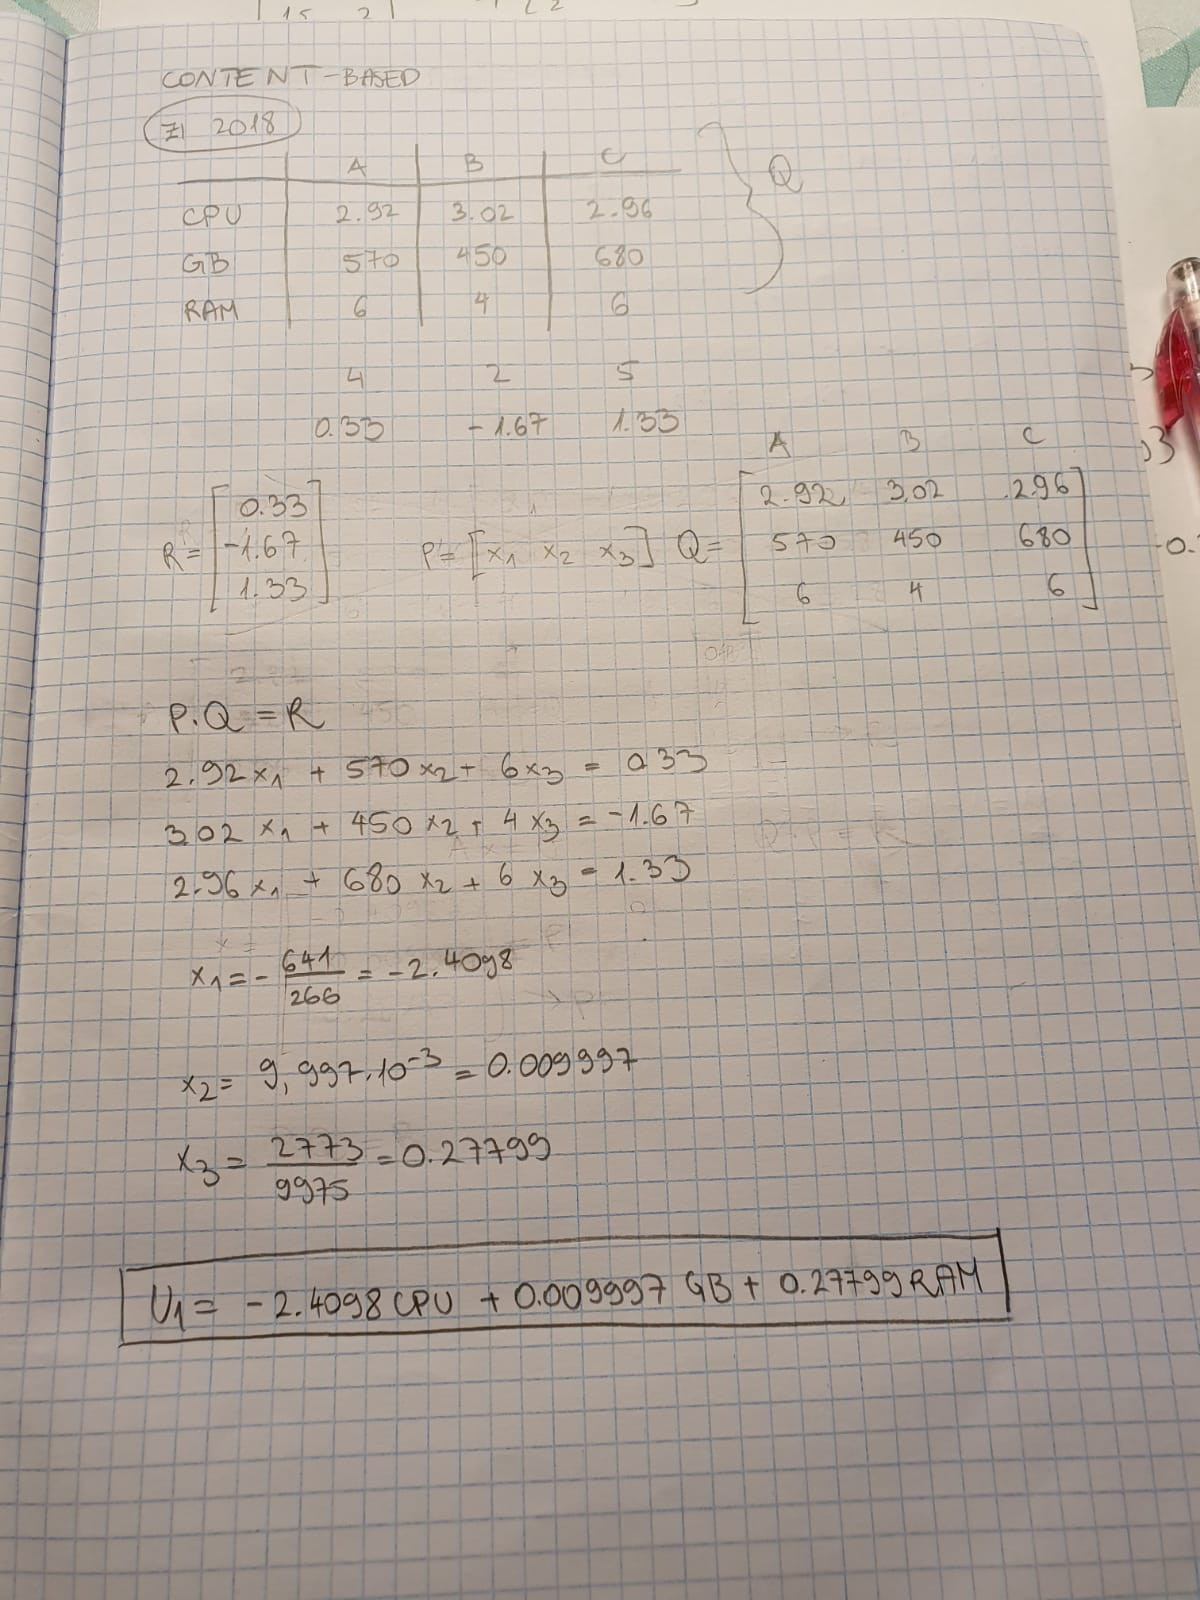 CONTENT-BASED
ZI 2018
A B C
CPU 2.92 3.02 2.96
GB 570 450 680
RAM 6 4 6
Q
4 2 5
0.33 -1.67 1.33
A B C
R = [0.33 -1.67 1.33]
P = [x₁ x₂ x₃]
Q = [2.92 3.02 2.96
570 450 680
6 4 6]
P.Q = R
2.92x₁ + 570x₂ + 6x₃ = 0.33
3.02x₁ + 450x₂ + 4x₃ = -1.67
2.96x₁ + 680x₂ + 6x₃ = 1.33
x₁ = - 641/266 = -2.4098
x₂ = 9,997.10⁻³ = 0.009997
x₃ = 2773/9975 = 0.27799
U₁ = -2.4098 CPU + 0.009997 GB + 0.27799 RAM